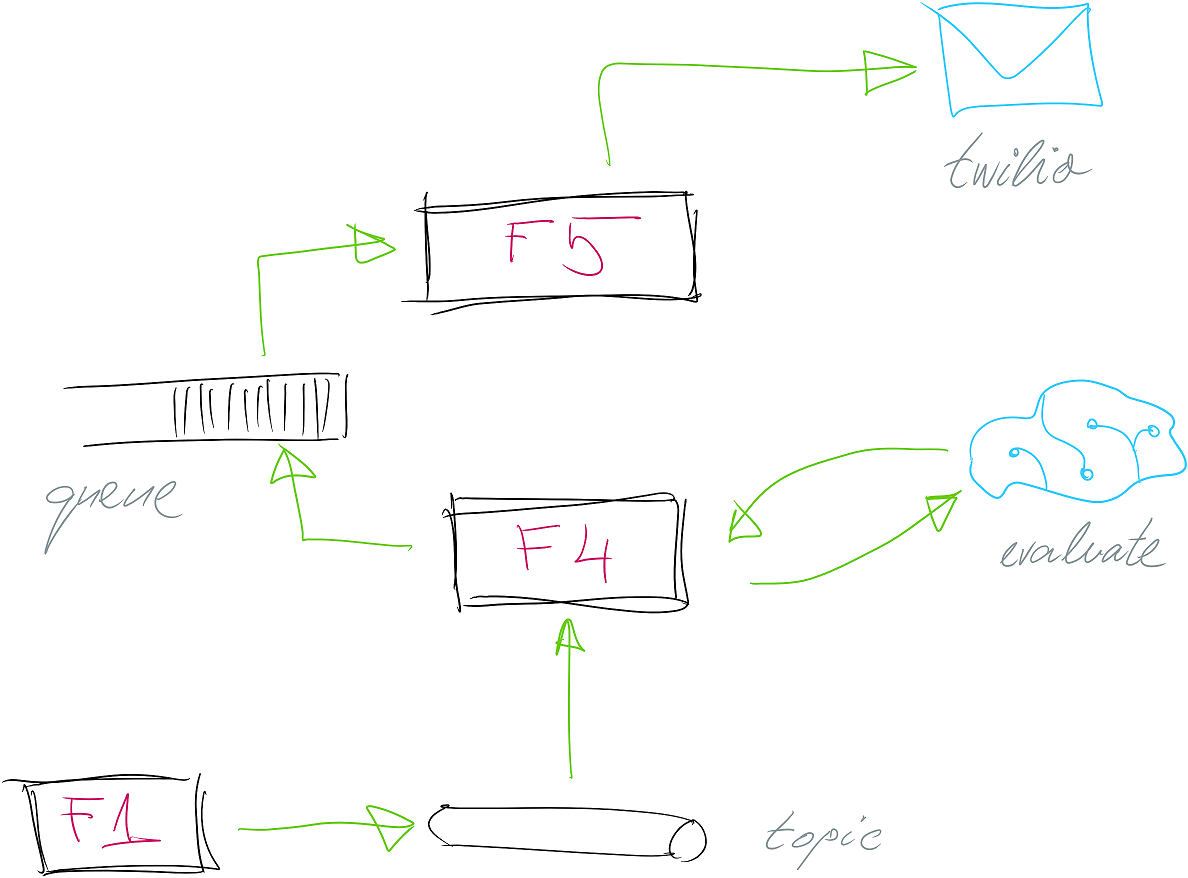 twilio
F5
queue
F4
evaluate
F1
topic